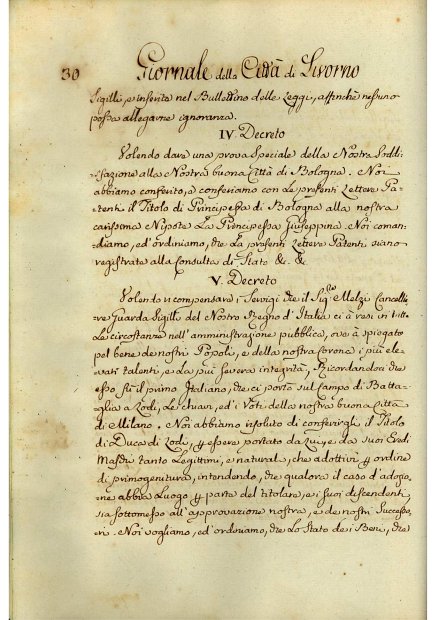 30 Giornale della Città di Livorno
Sigilli, e inserita nel Bullettino delle Leggi, affinchè nessuno
possa allegarne ignoranza.
IV. Decreto
Volendo dare una prova Speciale della Nostra Soddi-
sfazione alla Nostra buona Città di Bologna. Noi
abbiamo conferito, e conferiamo con le presenti Lettere Pa-
tenti il Titolo di Principessa di Bologna alla nostra
carissima Nipote La Principessa Giuseppina. Noi coman-
diamo, ed' ordiniamo, che le presenti Lettere Patenti siano
registrate alla Consulta di Stato &. &.
V. Decreto
Volendo ricompensare i Servigi che il Sig.re Melzi Cancelli-
ere Guarda Sigilli del Nostro Regno d'Italia ci à resi in tutte
le circostanze nell'amministrazione pubblica, ove à spiegato
pel bene de nostri Popoli, e della nostra Corona i più ele-
vati talenti, e la più severa integrità, Ricordandoci che
esso fù il primo Italiano, che ci portò sul Campo di Batta-
glia a Lodi, le chiavi, ed' i Voti della nostra buona Città
di Milano. Noi abbiamo risoluto di conferirgli il Titolo
di Duca di Lodi, p essere portato da Lui, e da suoi Eredi
Maschi tanto Legittimi, e naturali, che adottivi p ordine
di primogenitura, intendendo, che qualora il caso d'adozio-
ne abbia Luogo p parte del titolare, e i suoi discendenti,
sia sottomesso all'approvazione nostra, e de nostri Successo-
ri. Noi vogliamo, ed' ordiniamo, che Lo Stato dei Beni, che